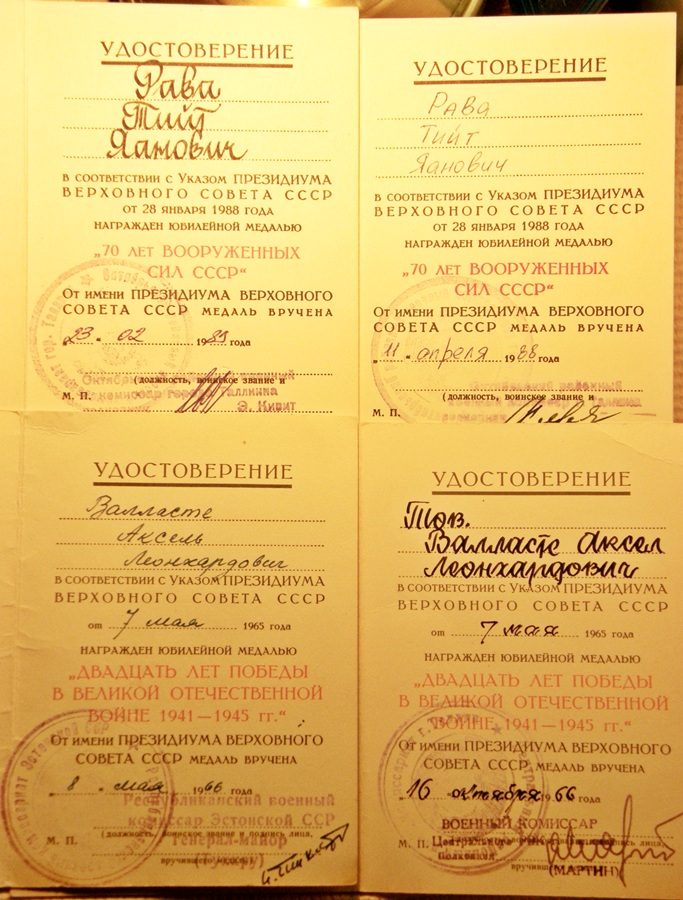 УДОСТОВЕРЕНИЕ
Рава
Тийт
Яанович
в соответствии с Указом ПРЕЗИДИУМА
ВЕРХОВНОГО СОВЕТА СССР
от 28 января 1988 года
награжден юбилейной медалью
„70 лет ВООРУЖЕННЫХ
СИЛ СССР“
От имени ПРЕЗИДИУМА ВЕРХОВНОГО
СОВЕТА СССР медаль вручена
„23“ 02 1989 года
(должность, воинское звание и
М. П.
Таллина
Э. Кивит
УДОСТОВЕРЕНИЕ
Рава
Тийт
Яанович
в соответствии с Указом ПРЕЗИДИУМА
ВЕРХОВНОГО СОВЕТА СССР
от 28 января 1988 года
награжден юбилейной медалью
„70 лет ВООРУЖЕННЫХ
СИЛ СССР“
От имени ПРЕЗИДИУМА ВЕРХОВНОГО
СОВЕТА СССР медаль вручена
„11“ апреля 1988 года
(должность, воинское звание и
М. П.
УДОСТОВЕРЕНИЕ
Валласте
Аксель
Леонхардович
в соответствии с Указом ПРЕЗИДИУМА
ВЕРХОВНОГО СОВЕТА СССР
от 7 мая 1965 года
награжден юбилейной медалью
„ДВАДЦАТЬ ЛЕТ ПОБЕДЫ
В ВЕЛИКОЙ ОТЕЧЕСТВЕННОЙ
ВОЙНЕ 1941—1945 гг.“
От имени ПРЕЗИДИУМА ВЕРХОВНОГО
СОВЕТА СССР медаль вручена
„8“ мая 1966 года
Республиканский военный
комиссар Эстонской ССР
(должность, воинское звание и подпись лица,
М. П. Генерал-майор
вручившего медаль)
УДОСТОВЕРЕНИЕ
Тов.
Валласте Аксел
Леонхардович
в соответствии с Указом ПРЕЗИДИУМА
ВЕРХОВНОГО СОВЕТА СССР
от 7 мая 1965 года
награжден юбилейной медалью
„ДВАДЦАТЬ ЛЕТ ПОБЕДЫ
В ВЕЛИКОЙ ОТЕЧЕСТВЕННОЙ
ВОЙНЕ 1941—1945 гг.“
От имени ПРЕЗИДИУМА ВЕРХОВНОГО
СОВЕТА СССР медаль вручена
„16“ октября 1966 года
ВОЕННЫЙ КОМИССАР
М. П.
Полковник
(МАРТИН)